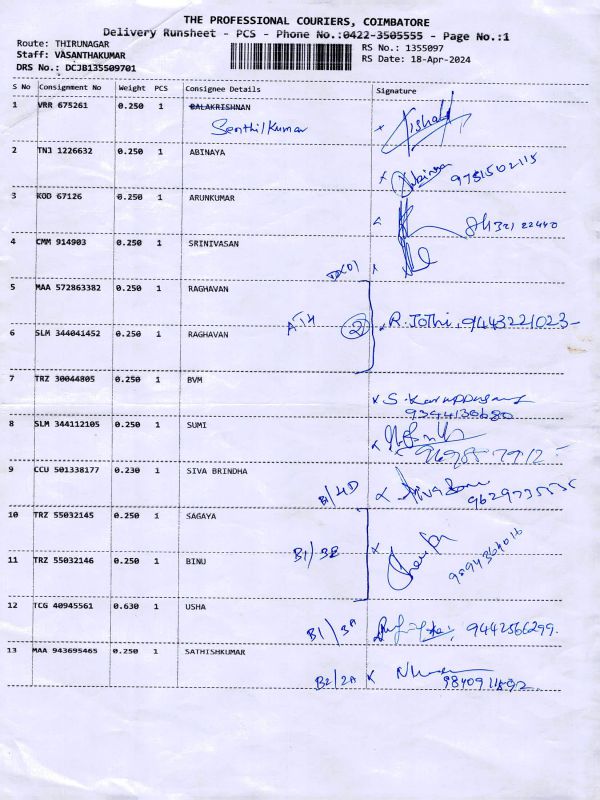 THE PROFESSIONAL COURIERS, COIMBATORE
Delivery Runsheet - PCS - Phone No.:0422-3505555 - Page No.:1
Route: THIRUNAGAR
Staff: VASANTHAKUMAR
DRS No.: DCJB135509701
RS No.: 1355097
RS Date: 18-Apr-2024
S No Consignment No Weight PCS Consignee Details Signature
1 VRR 675261 0.250 1 BALAKRISHNAN
Senthilkumar
2 TNJ 1226632 0.250 1 ABINAYA
Abinaya 9751502115
3 KOD 67126 0.250 1 ARUNKUMAR
4 CMM 914903 0.250 1 SRINIVASAN
5 MAA 572863382 0.250 1 RAGHAVAN
2 R. Jothi, 9443221023
6 SLM 344041452 0.250 1 RAGHAVAN
7 TRZ 30044805 0.250 1 BVM
8 SLM 344112105 0.250 1 SUMI
9 CCU 501338177 0.230 1 SIVA BRINDHA
B1/4D
10 TRZ 55032145 0.250 1 SAGAYA
11 TRZ 55032146 0.250 1 BINU
12 TCG 40945561 0.630 1 USHA
B1/3A 9442566299.
13 MAA 943695465 0.250 1 SATHISHKUMAR
B2/2A